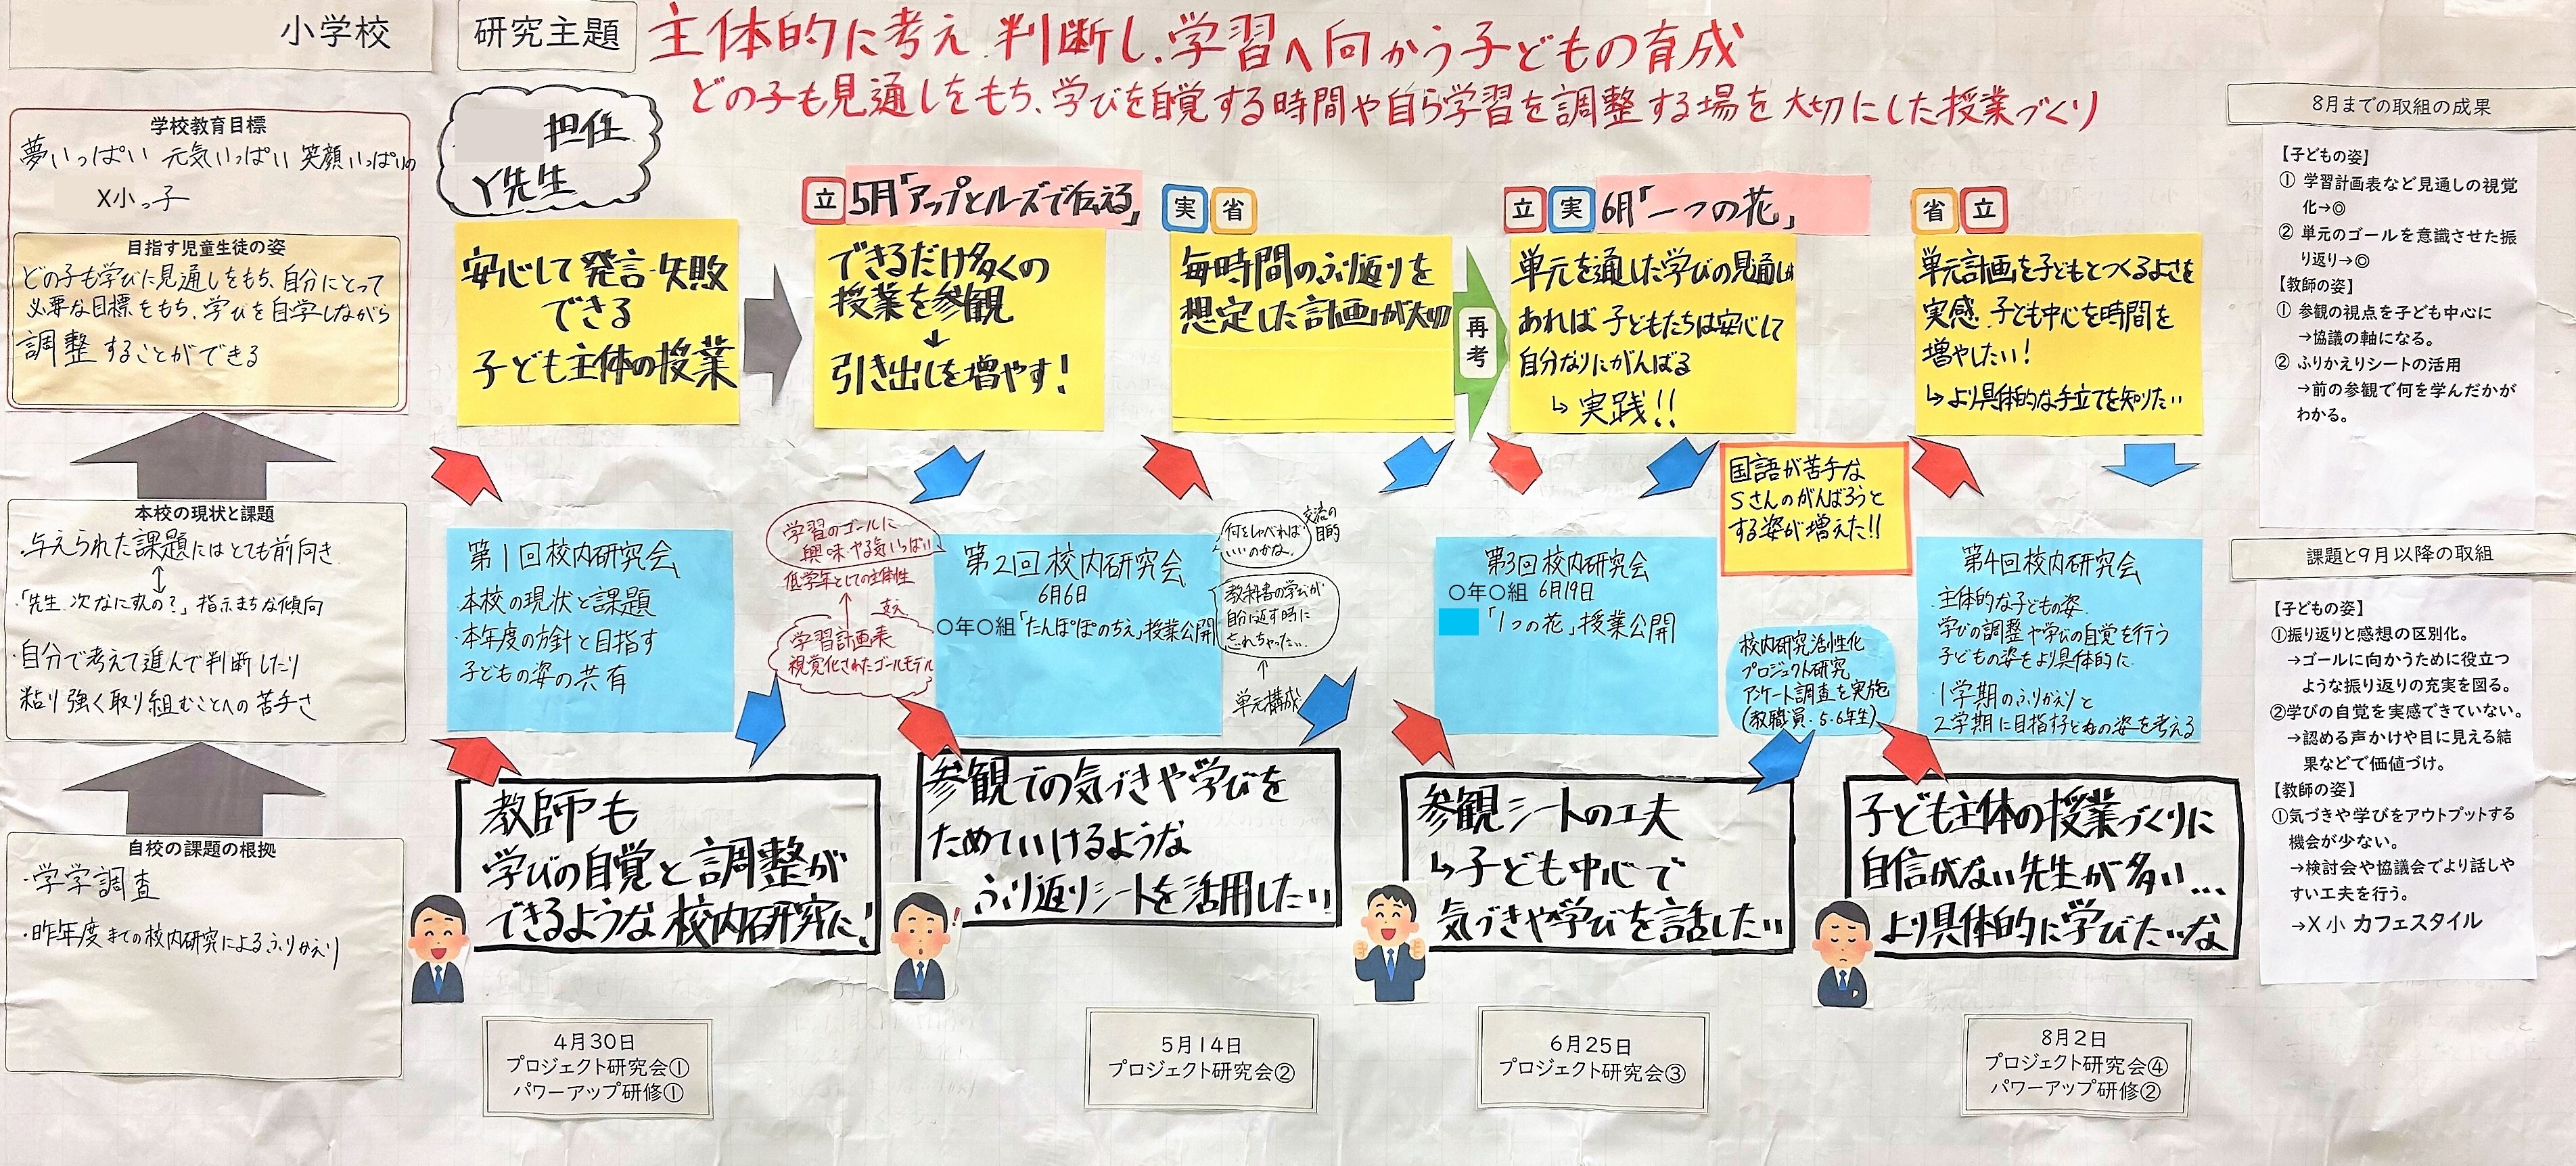 小学校
研究主題
主体的に考え 判断し、学習へ向かう子どもの育成
どの子も見通しをもち、学びを自覚する時間や自ら学習を調整する場を大切にした授業づくり
学校教育目標
夢いっぱい 元気いっぱい 笑顔いっぱいの
X小っ子
目指す児童生徒の姿
どの子も学びに見通しをもち、自分にとって
必要な目標をもち、学びを自学しながら
調整することができる
本校の現状と課題
・与えられた課題にはとても前向き
↕
・「先生、次なにすんの?」指示まちな傾向
・自分で考えて進んで判断したり
粘り強く取り組むことへの苦手さ
自校の課題の根拠
・学学調査
・昨年度までの校内研究によるふりかえり
担任
Y先生
安心して発言・失敗
できる
子ども主体の授業
立
5月「アップとルーズで伝える」
実
省
できるだけ多くの
授業を参観
↓
引き出しを増やす!
毎時間のふり返りを
想定した計画が大切
再考
立
実
6月「一つの花」
単元を通した学びの見通しが
あれば 子どもたちは安心して
自分なりにがんばる
↳ 実践!!
省
立
単元計画を子どもとつくるよさを
実感 子ども中心を時間を
増やしたい!
↳より具体的な手立てを知りたい
国語が苦手な
Sさんのがんばろうと
する姿が増えた!!
第1回校内研究会
・本校の現状と課題
・本年度の方針と目指す
子どもの姿の共有
学習のゴールに
興味 やる気いっぱい
低学年としての主体性
↑
支え
学習計画表
視覚化されたゴールモデル
第2回校内研究会
6月6日
〇年〇組「たんぽぽのちえ」授業公開
何をしゃべれば
いいのかな。
交流の
目的
教科書の学びが
自分に返す時に
忘れちゃった…
↑
単元構成
第3回校内研究会
〇年〇組 6月19日
「1つの花」授業公開
校内研究活性化
プロジェクト研究
アンケート調査を実施
(教職員・5・6年生)
第4回校内研究会
・主体的な子どもの姿
学びの調整や学びの自覚を行う
子どもの姿をより具体的に
・1学期のふりかえりと
2学期に目指す子どもの姿を考える
教師も
学びの自覚と調整が
できるような校内研究に!
参観での気づきや学びを
ためていけるような
ふり返りシートを活用したい
!
参観シートの工夫
↳子ども中心で
気づきや学びを話したい
子ども主体の授業づくりに
自信がない先生が多い…
より具体的に学びたいな
4月30日
プロジェクト研究会①
パワーアップ研修①
5月14日
プロジェクト研究会②
6月25日
プロジェクト研究会③
8月2日
プロジェクト研究会④
パワーアップ研修②
8月までの取組の成果
【子どもの姿】
① 学習計画表など見通しの視覚
化→◎
② 単元のゴールを意識させた振
り返り→◎
【教師の姿】
① 参観の視点を子ども中心に
→協議の軸になる。
② ふりかえりシートの活用
→前の参観で何を学んだかが
わかる。
課題と9月以降の取組
【子どもの姿】
①振り返りと感想の区別化。
→ゴールに向かうために役立つ
ような振り返りの充実を図る。
②学びの自覚を実感できていない。
→認める声かけや目に見える結
果などで価値づけ。
【教師の姿】
①気づきや学びをアウトプットする
機会が少ない。
→検討会や協議会でより話しや
すい工夫を行う。
→X小 カフェスタイル